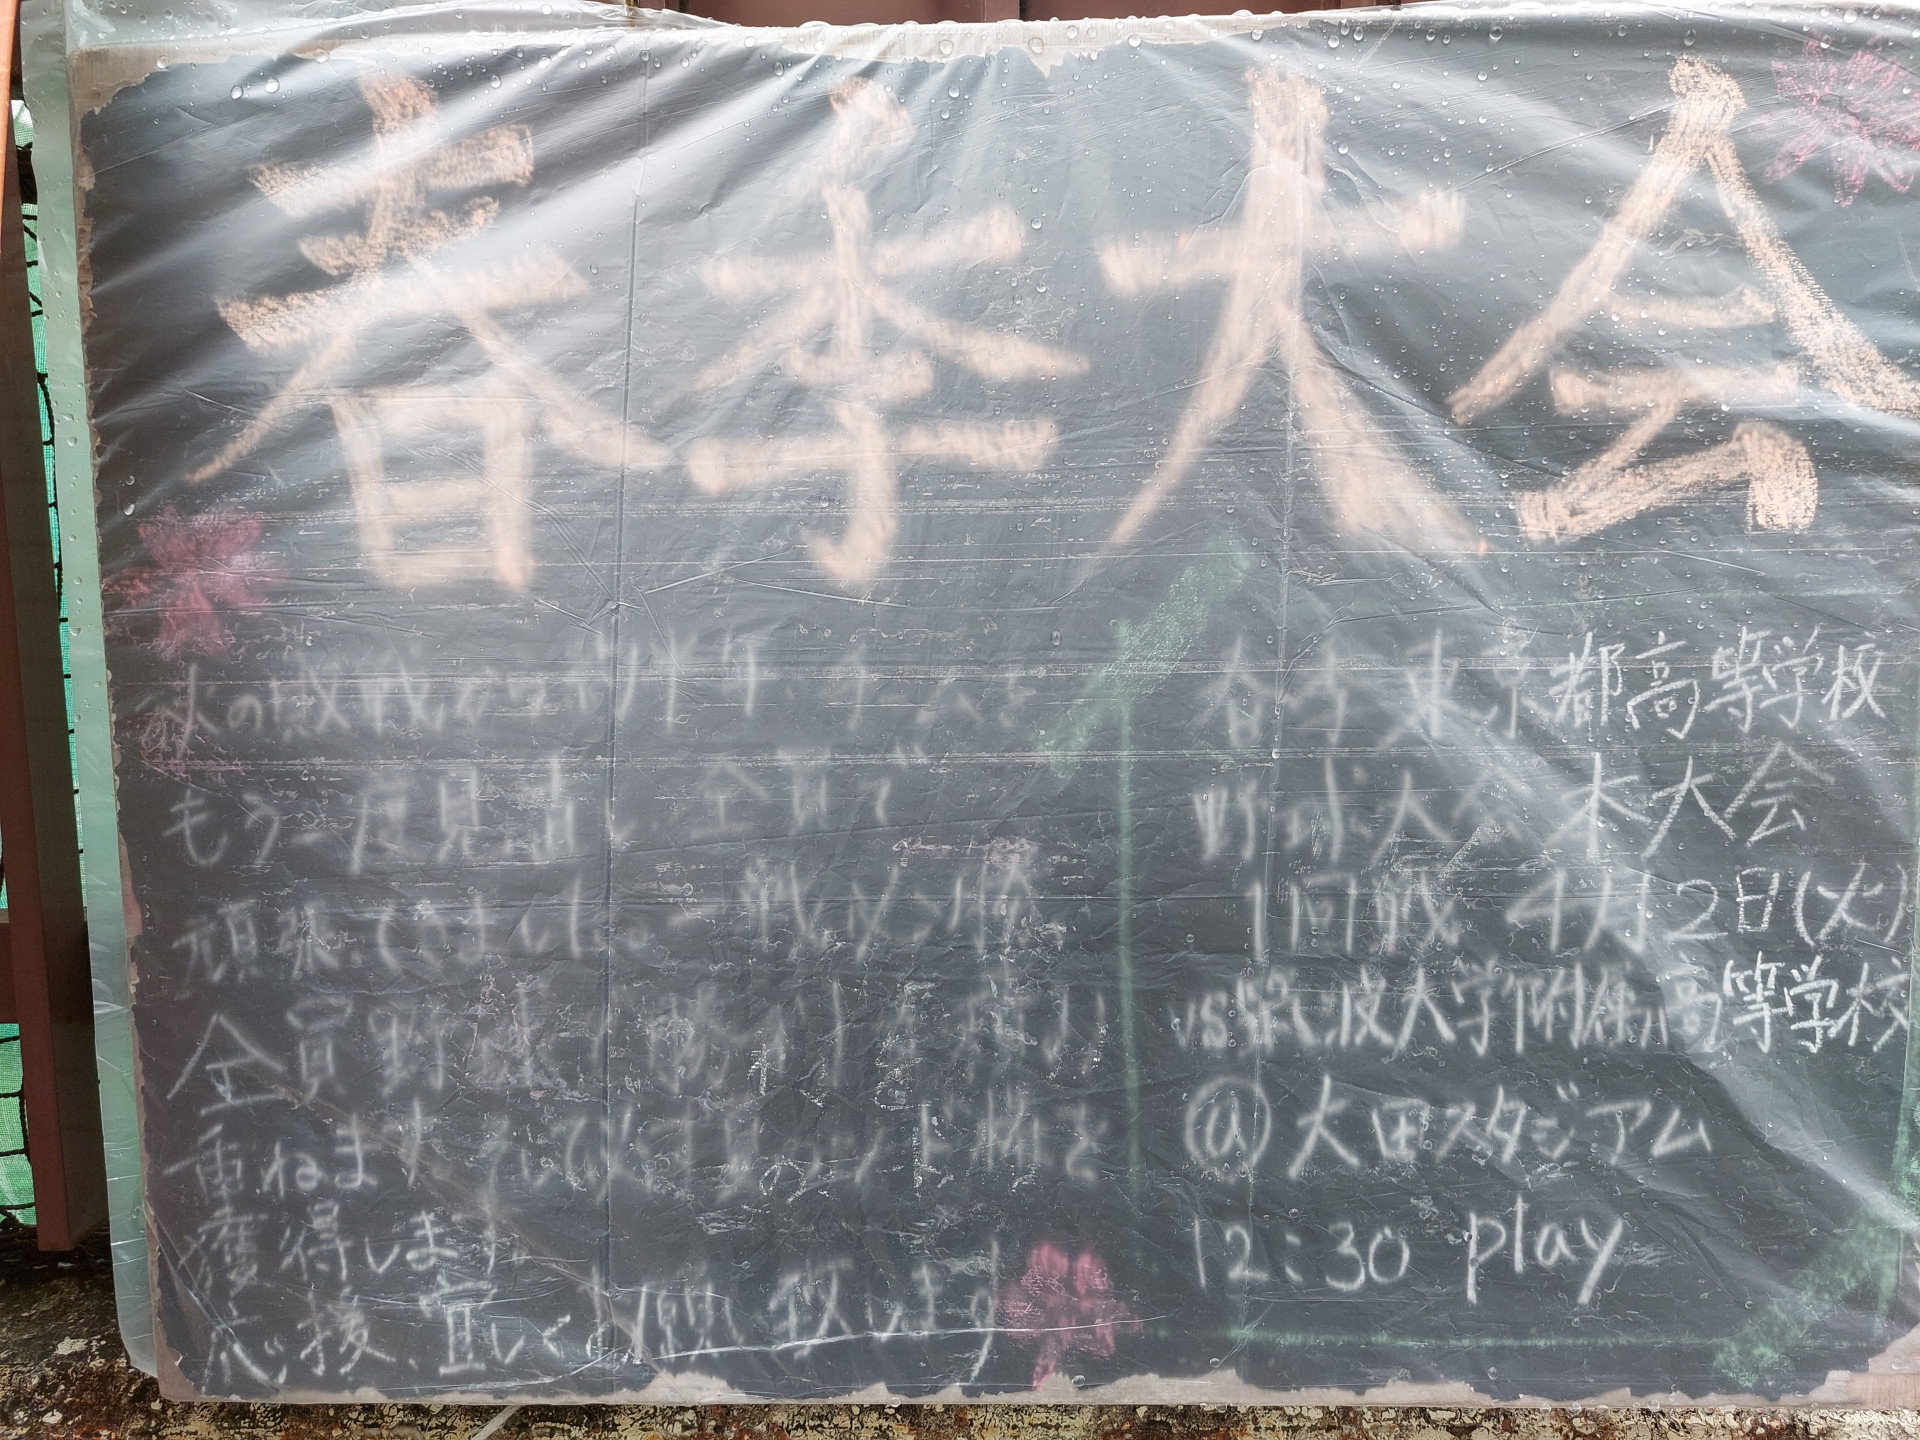 春季大会
秋の敗戦から
もう一度見直し、全員で
頑張ってきました。一戦必勝
全員野球で勝利を
重ねます。シード権を
獲得します。
応援、宜しくお願い致します
春季東京都高等学校
野球大会 本大会
1回戦 4月2日(火)
VS筑波大学附属高等学校
@大田スタジアム
12:30 play